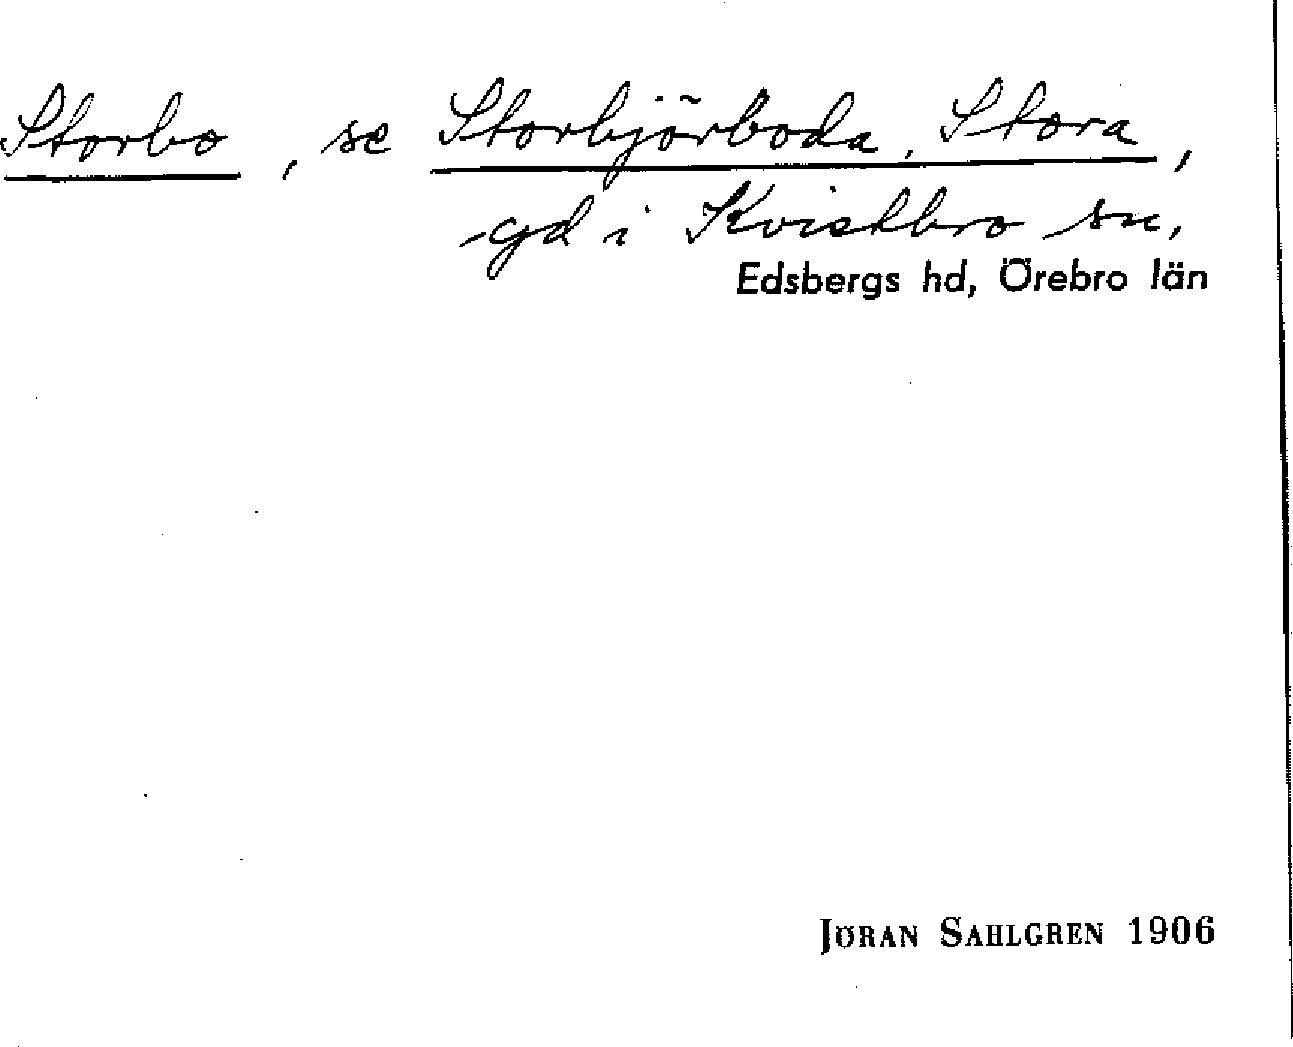 Storbo, se Storbjörboda, Stora,
gd i Kvistbro sn,
Edsbergs hd, Örebro län
JÖRAN SAHLGREN 1906